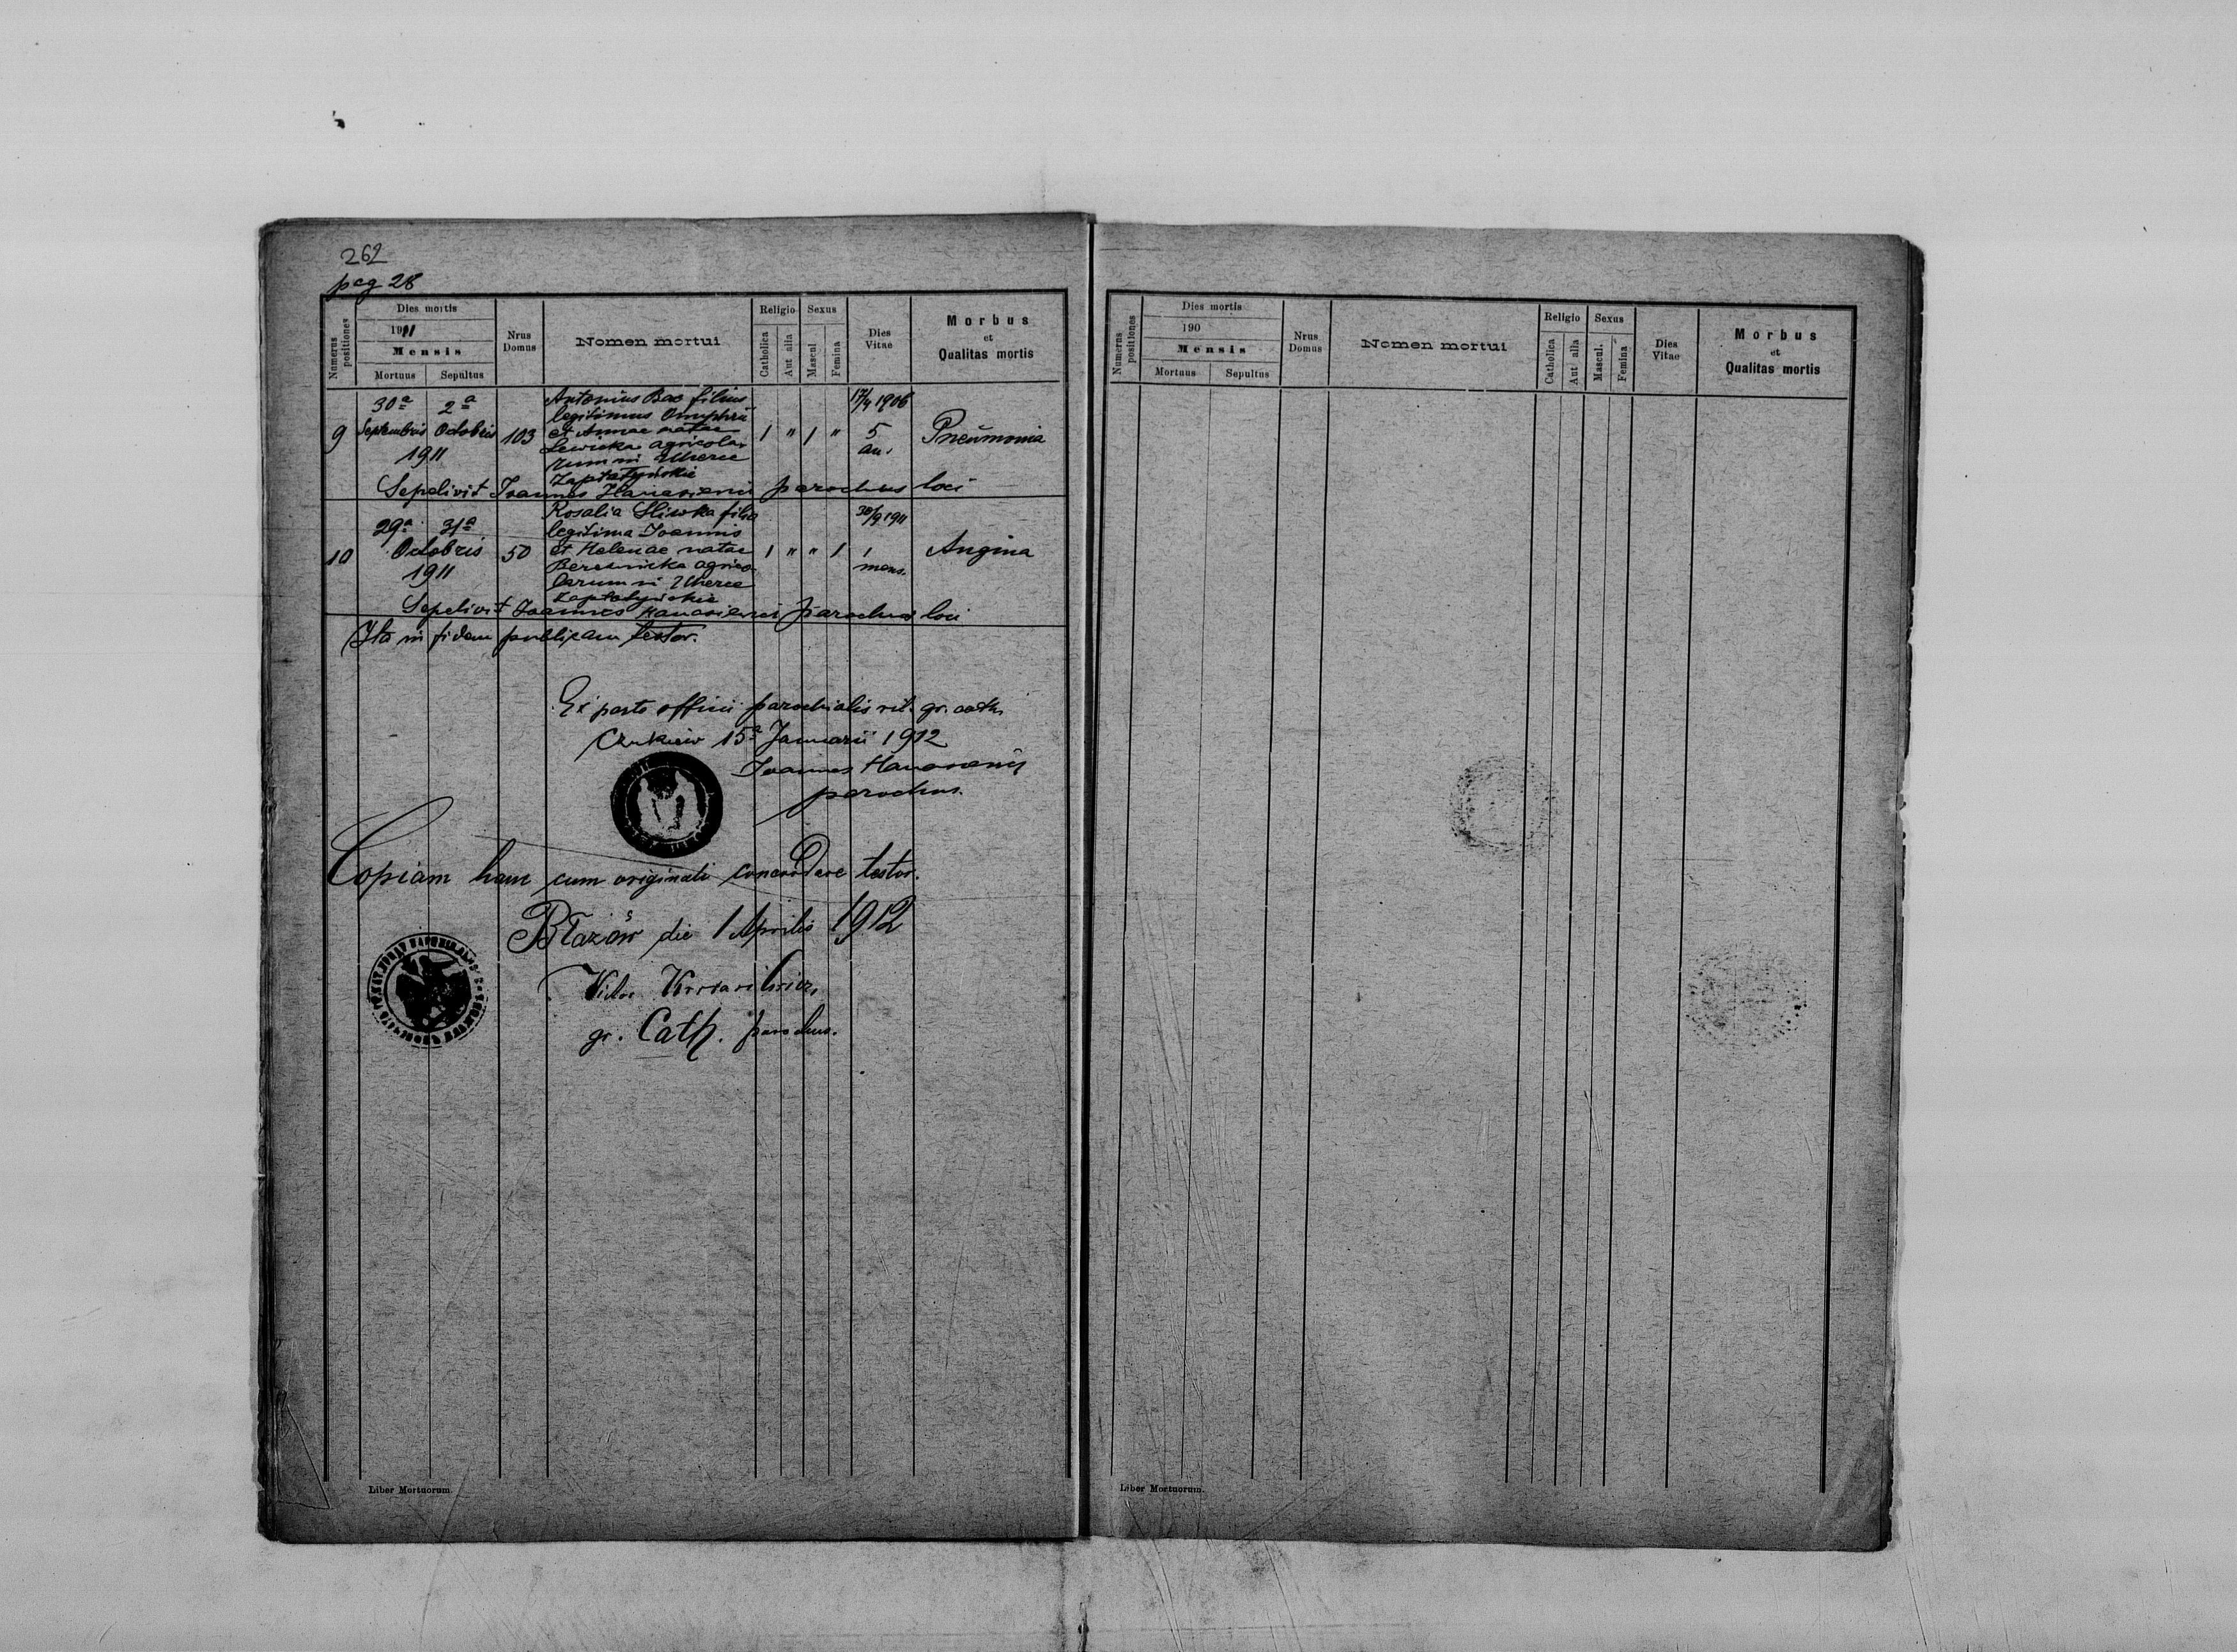 262
pag 28
Numerus positiones
Dies mortis
1911
Mensis
Mortuus Sepultus
Nrus Domus
Nomen mortui
Religio
Catholica
Aut alia
Sexus
Mascul
Femina
Dies Vitae
Morbus
et
Qualitas mortis
9
30a 2a
Septembris Octobris
1911
103
Antonius Bac filius
legitimus Onuphrii
et Annae natae
Lewicka agricola-
rum in Uherce
Zapłatyńskie
1 " 1 "
17/4 1906
5
an.
Pneumonia
Sepelivit Joannes parochus loci
10
29a 31a
Octobris
1911
50
Rosalia Sliwka filia
legitima Joannis
et Helenae natae
Bereznicka agrico-
larum in Uherce
Zapłatyńskie
1 " " 1
30/9 1911
1
mens.
Angina
Sepelivit Joannes parochus loci
Ita in fidem publicam testor.
officii parochialis rit. gr. cath.
15a Januarii 1912
Joannes
parochus.
Copiam hanc cum originali concordare testor.
Błażów die 1 Aprilis 1912
gr. Cath. parochus.
Liber Mortuorum.
Numerus positiones
Dies mortis
190
Mensis
Mortuus Sepultus
Nrus Domus
Nomen mortui
Religio
Catholica
Aut alia
Sexus
Mascul.
Femina
Dies Vitae
Morbus
et
Qualitas mortis
Liber Mortuorum.